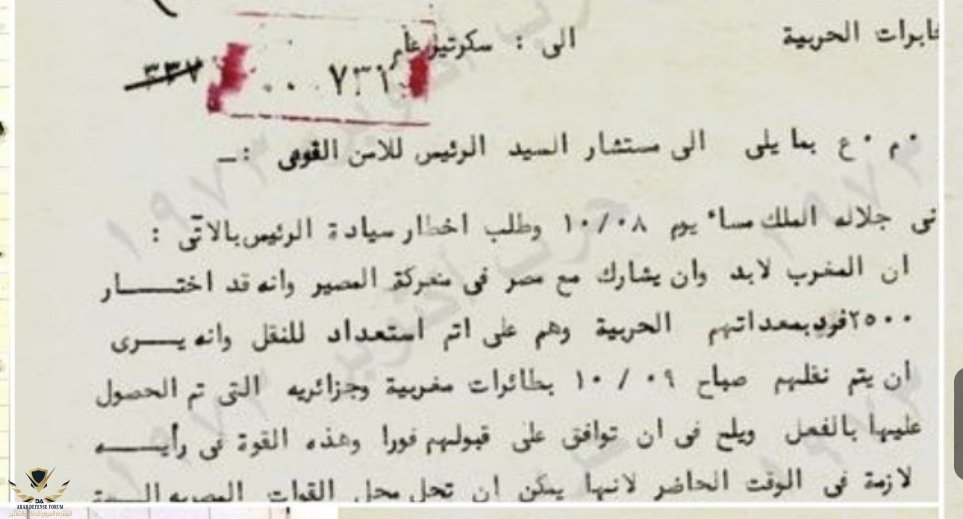 خابرات الحربية الى : سكرتير عام
٣٣٧ ٠٠ ٧٣١
٠ م ٠ ع بما يلى الى مستشار السيد الرئيس للامن القومى :ـ
نى جلاله الملك مساء يوم ١٠/٠٨ وطلب اخطار سيادة الرئيس بالاتى :
ان المغرب لابد وان يشارك مع مصر فى معركة المصير وانه قد اختـــــار
٢٥٠٠ فرد بمعداتهم الحربية وهم على اتم استعداد للنقل وانه يـــــرى
ان يتم نقلهم صباح ١٠/٠٩ بطائرات مغربية وجزائريه التى تم الحصول
عليها بالفعل ويلح فى ان توافق على قبولهم فورا وهذه القوة فى رأيـــــه
لازمة فى الوقت الحاضر لانها يمكن ان تحل محل القوات المصريه
ARAB DEFENSE FORUM